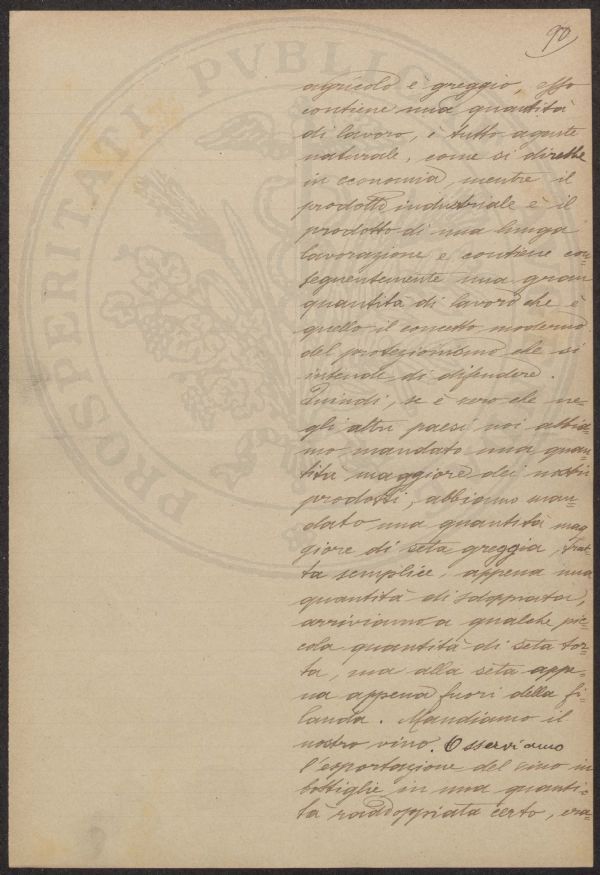 90
PROSPERITATI PVBLIC
agricolo è greggio, esso
contiene una quantità
di lavoro, è tutto agente
naturale, come si direbbe
in economia mentre il
prodotto industriale è il
prodotto di una lunga
lavorazione e contiene con-
seguentemente una gran
quantità di lavoro che è
quello il concetto moderno
del protezionismo che si
intende di difendere.
Quindi, se è vero che ne-
gli altri paesi noi abbia-
mo mandato una quan-
tità maggiore dei nostri
prodotti, abbiamo man-
dato una quantità mag
giore di seta greggia, trat-
ta semplice, appena una
quantità di addoppiata,
arriviamo a qualche pic-
cola quantità di seta tor-
ta, ma alla seta appe-
na appena fuori della fi-
landa. Mandiamo il
nostro vino. Osserviamo
l'esportazione del vino in
bottiglie in una quanti-
tà raddoppiata certo, era-